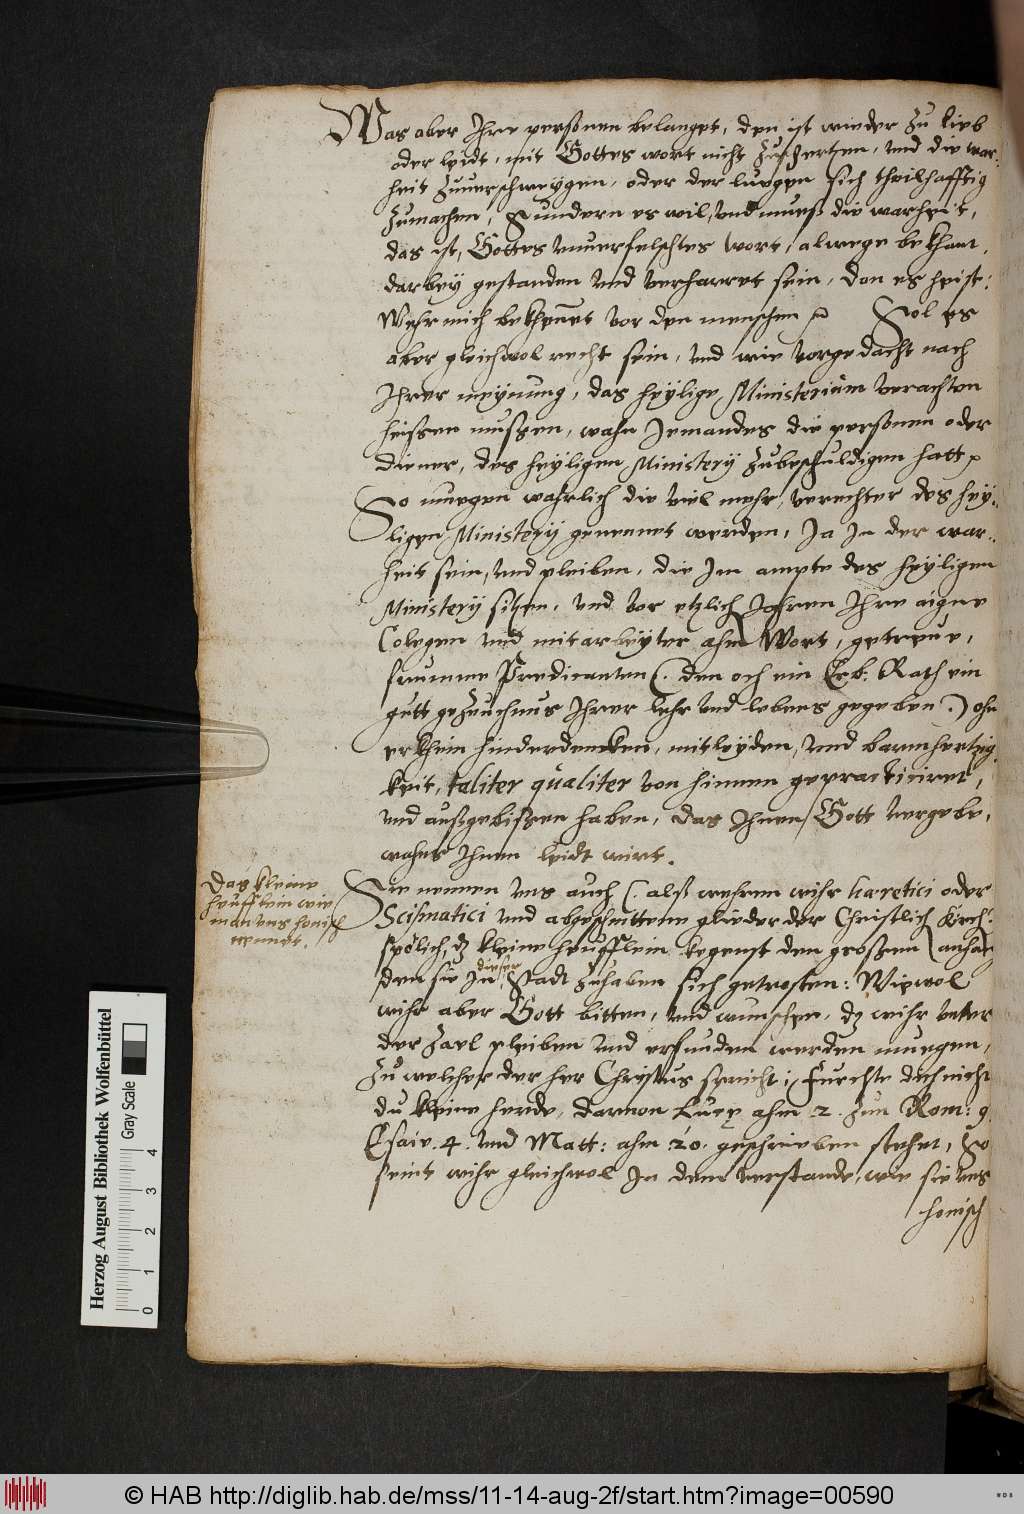 Was aber Ihre personen belanget, den ist wieder zu lieb
oder leidt, mit Gottes wort nicht zuschertzen, und die war-
heit zuuerschweygen, oder der luegen sich theilhafftig
zumachen, Sundern es wil, und mueß die warheit,
das ist, Gottes unuerfelschtes wort, alwege bekhant,
darbey gestanden und verharret sein, den es heist:
Wehr mich bekhennet vor den menschen Sol es
aber gleichwol recht sein, und wie vorgedacht nach
Ihrer meynung, das heylige Ministerium verachten
heissen mussen, wahn Jemandes die personen oder
diener, des heyligen Ministery zubeschuldigen hatt
So muegen wahrlich die viel mehr, verechter des hey-
ligen Ministery genennet werden, Ja In der war-
heit sein, und pleiben, die Im ampte des heyligen
Ministery sitzen, und vor etzlich Jahren Ihre aigne
Colegen und mitarbeyter ahm Wort, getreue,
frumme Predicanten (. den och ein Erb. Rath ein
gutt gezeuchnus Ihrer lehr und lebens gegeben .) ohn
erkhein hinderdencken, mitleyden, und barmhertzig
keit, taliter qualiter von hinnen gepracticiret,
und außgebissen haben, das Ihnen Gott vergebe,
wahns Ihnen leidt wirt.
Das kleine
heufflein wie
man uns honisch
nennet.
Sie nennen uns auch (. alß wehren wihr hæretici oder
Scismatici und abgeschnittene glieder der Christlich Kirch.
spölich, dz kleine heufflein kegenst den grossen anhang
den sie In dieser Stadt zuhaben sich getrosten: Wiewol
wihr aber Gott bitten, und wunschen, dz wihr unter
der zael pleiben und erfunden werden muegen,
zu welcher der her Christus spricht, Furchte dich nicht
du kleine herde, daruon Lucę ahm 2. zun Rom: 9.
Esaie. 4. und Matt: ahm 20. geschrieben stehet, So
seint wihr gleichwol In dem verstande, wie sie uns
honisch
Herzog August Bibliothek Wolfenbüttel
Gray Scale
0 1 2 3 4
© HAB http://diglib.hab.de/mss/11-14-aug-2f/start.htm?image=00590